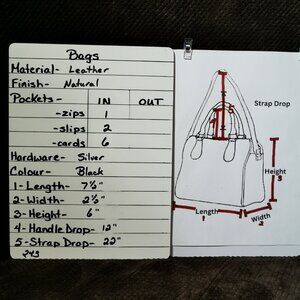 Bags
Material- Leather
Finish- Natural
Pockets- IN OUT
-zips 1
-slips 2
-cards 6
Hardware- Silver
Colour- Black
1- Length- 7½"
2- Width- 2½"
3- Height- 6"
4- Handle Drop- 12"
5- Strap Drop- 22"
243
Strap Drop
Height
3
Length
1
Width
2